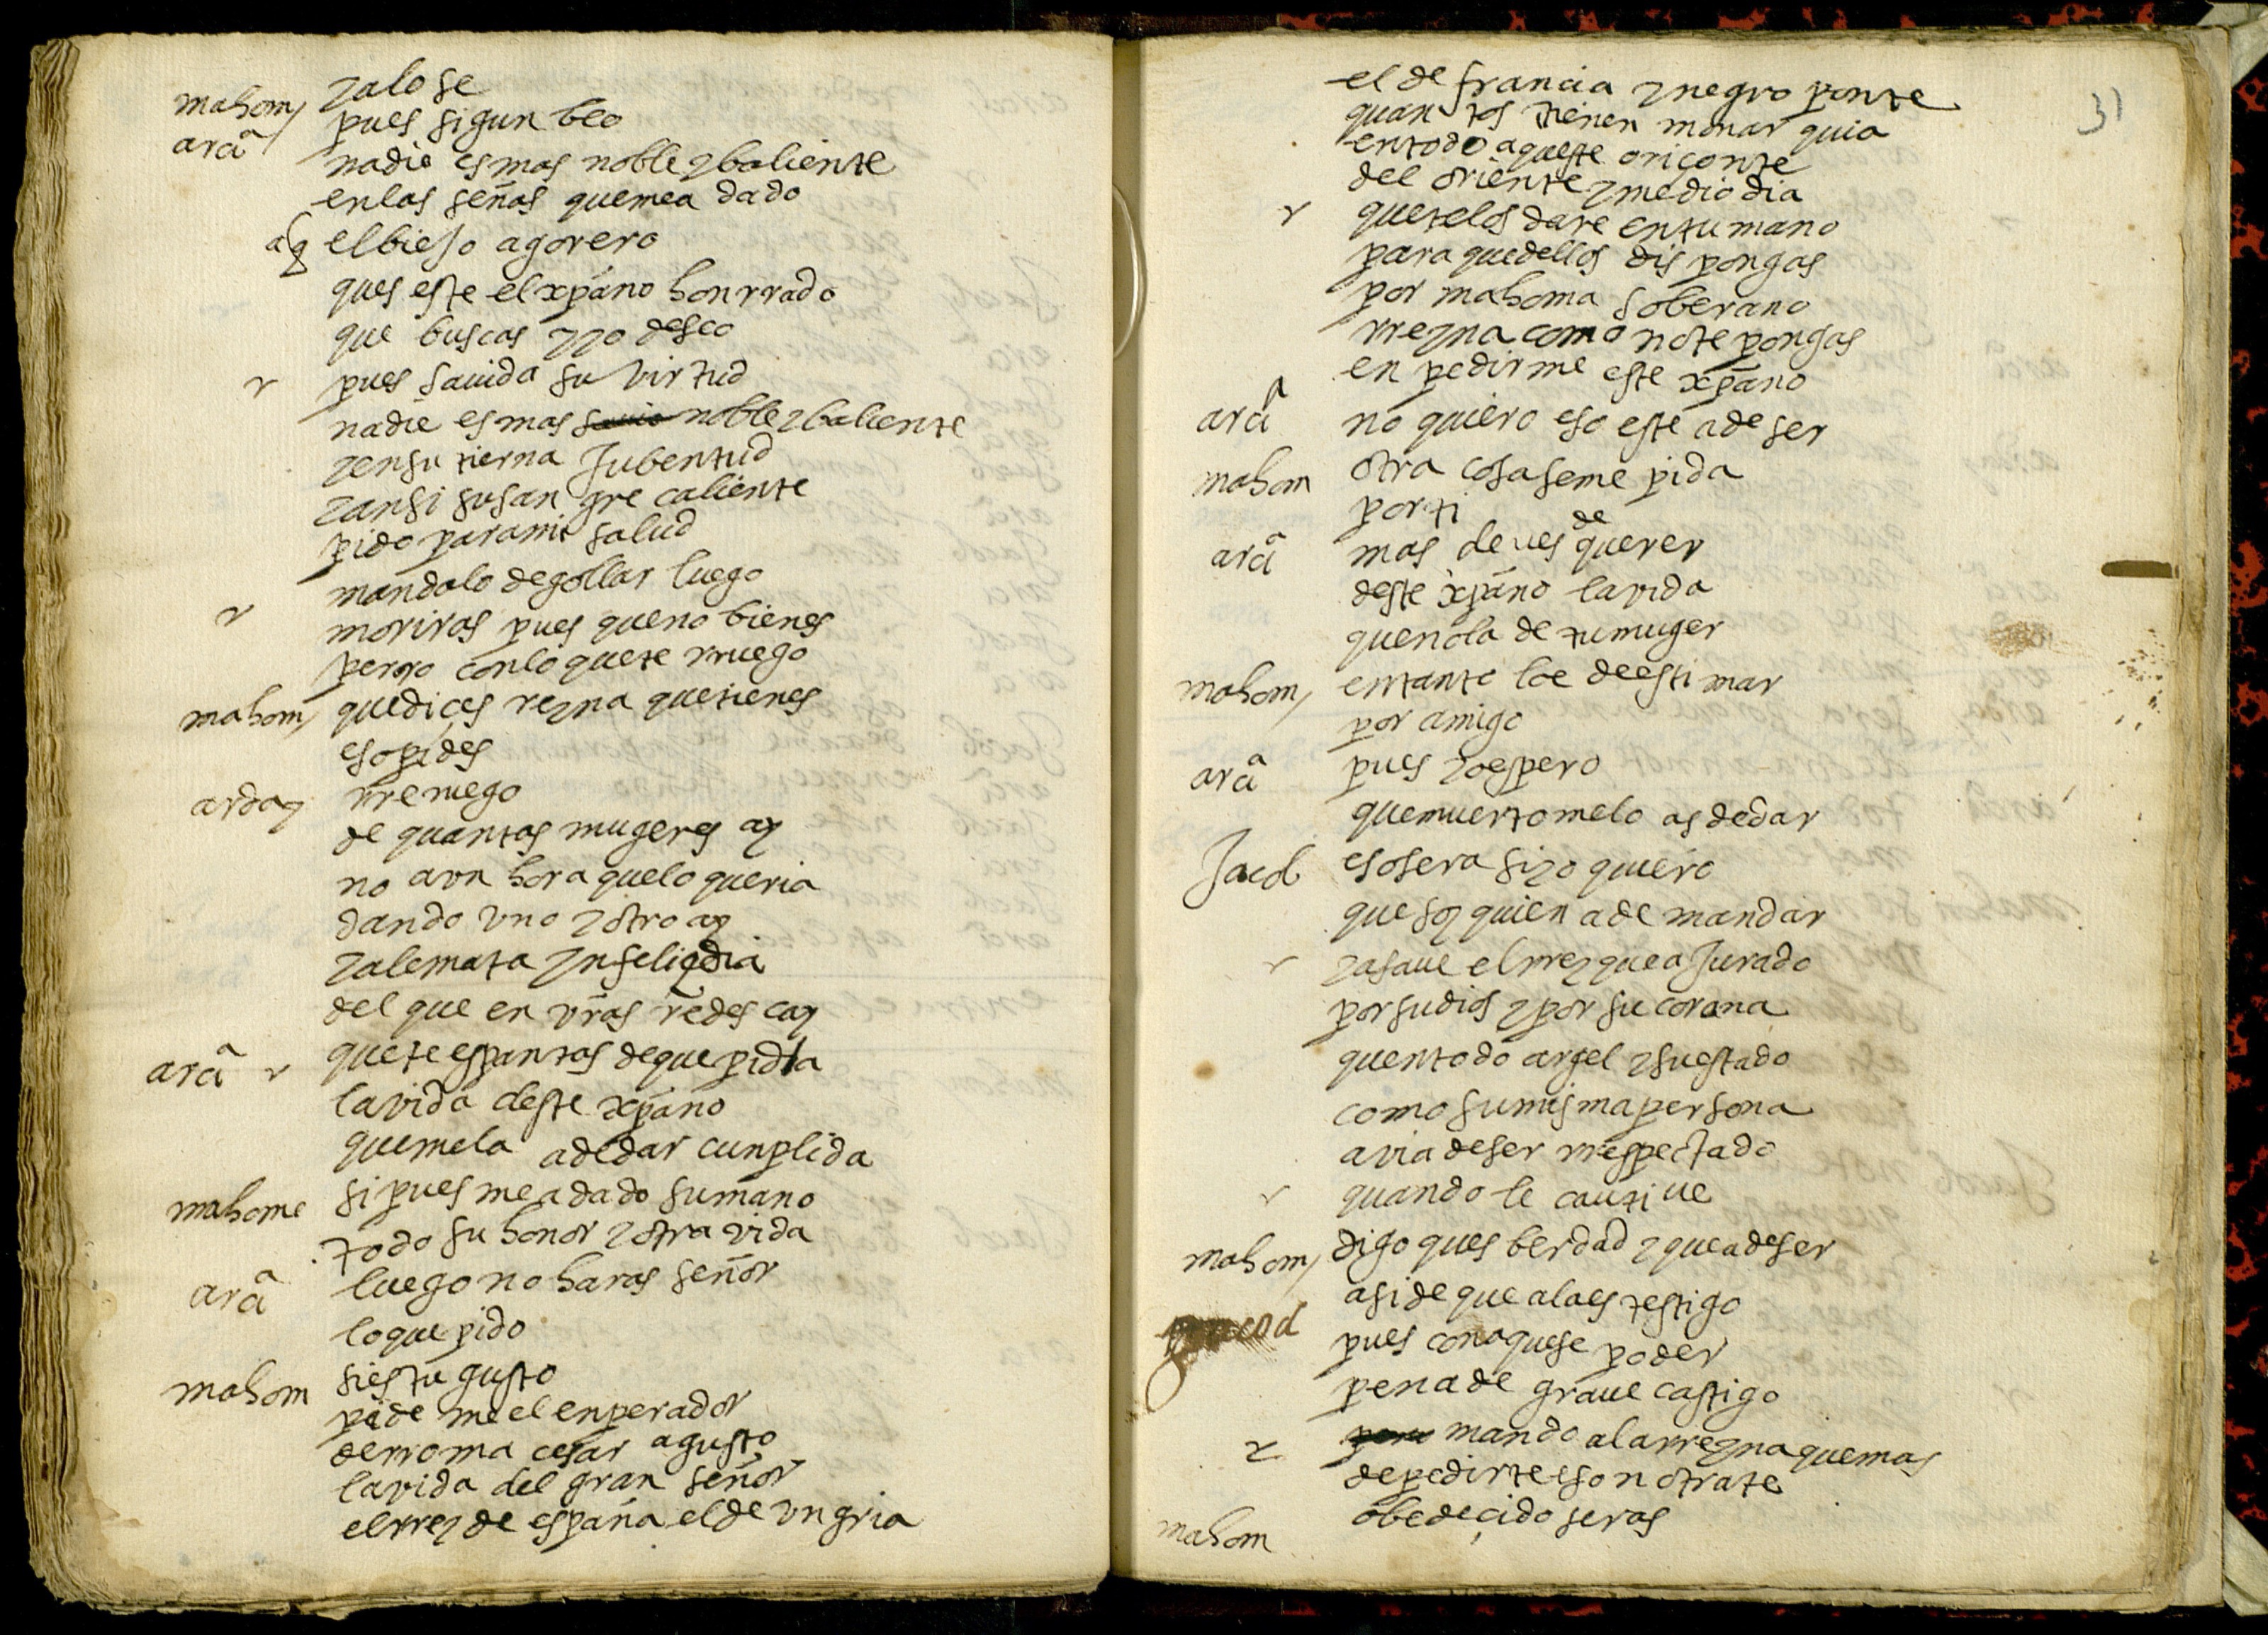 mahom yalo se
ara pues sigun beo
nadie es mas noble y baliente
en las señas que mea dado
el biejo agorero
ques este el xpāno honrrado
que buscas y yo deseo
pues sauida su virtud
nadie es mas noble y baliente
y en su tierna Jubentud
y ansi su san gre caliente
pido para mi salud
mandalo degollar luego
moriras pues que no bienes
perro con lo que te rruego
mahom que dices reyna que tienes
eso pides
arday rreniego
de quantas mugeres ay
no a vn hora que lo queria
dando vno y otro ay
y a le mata ynfeliz dia
del que en vr̄as redes cay
ara que te espantas de que pida
la vida deste xpāno
que me la a de dar cunplida
mahome si pues me a dado su mano
todo su honor y otra vida
ara luego no haras señor
lo que pido
mahom si es tu gusto
pide me el enperador
de rroma cesar agusto
la vida del gran señor
el rrey de españa el de vngria
31
el de francia y negro ponte
quan tos tienen monar quia
en todo aqueste oriçonte
del oriente y medio dia
que te los dare en tu mano
para que dellos dis pongas
por mahoma soberano
rreyna como no te pongas
en pedirme este xpāno
ara no quiero eso este a de ser
mahom otra cosa se me pida
por ti
ara mas deues de querer
deste xpāno la vida
que no la de tu muger
mahom en tanto loe de esti mar
por amigo
ara pues yo espero
que muerto me lo as de dar
Jacob eso sera si yo quiero
que soy quien a de mandar
ya saue el rrey que a Jurado
por su dios y por su corona
quen todo argel y su estado
como su misma persona
avia de ser rrespectado
quando le cauti ue
mahom digo ques berdad y que a de ser
asi de que ala es testigo
pues con aquese poder
pena de graue castigo
mando a la rreyna que mas
de pedirte eso no trate
mahom obedeçido seras